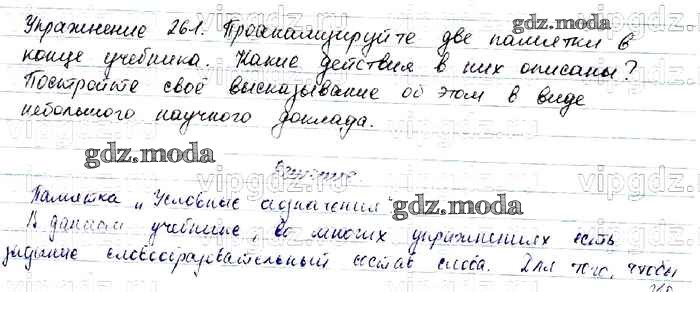 Упражнение 261. Проанализируйте две памятки в
gdz.moda
конце учебника. Какие действия в них описаны?
Постройте своё высказывание об этом в виде
небольшого научного доклада.
gdz.moda
Решение
Памятка „Условные обозначения"
gdz.moda
В данном учебнике, во многих упражнениях есть
задание словообразовательный состав слова. Для того, чтобы